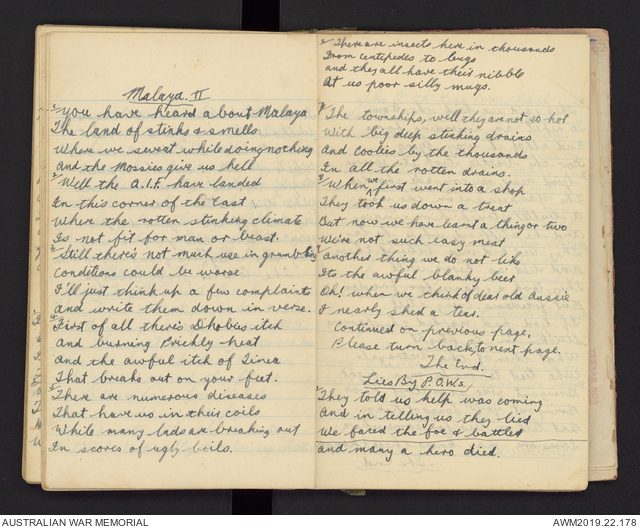 Malaya. II
1 You have heard about Malaya
The land of stinks & smells
Where we sweat while doing nothing
And the Mossies give us hell
2 Well the A.I.F. have landed
In this corner of the East
Where the rotten stinking climate
Is not fit for man or beast.
3 Still there's not much use in grumbling
Conditions could be worse
I'll just think up a few complaints
And write them down in verse.
4 First of all there's Dhobies itch
And burning Prickly heat
And the awful itch of Tinea
That breaks out on your feet.
5 There are numerous diseases
That have us in their coils
While many lads are breaking out
In scores of ugly boils.
6 There are insects here in thousands
From centepedes to bugs
and they all have their nibble
At us poor silly mugs.
7 The townships, well they are not so hot
With big deep stinking drains
And Coolies by the thousands
In all the rotten drains.
8 When we first went into a shop
They took us down a treat
But now we have learnt a thing or two
We're not such easy meat
9 Another thing we do not like
Its the awful blanky beer
Oh! when we think of dear old Aussie
I nearly shed a tear.
Continued on previous page.
Please turn back to next page.
The End.
Lies By P.O.Ws.
1 They told us help was coming
And in telling us they lied
We faced the foe & battled
and many a hero died.
AUSTRALIAN WAR MEMORIAL
AWM2019.22.178